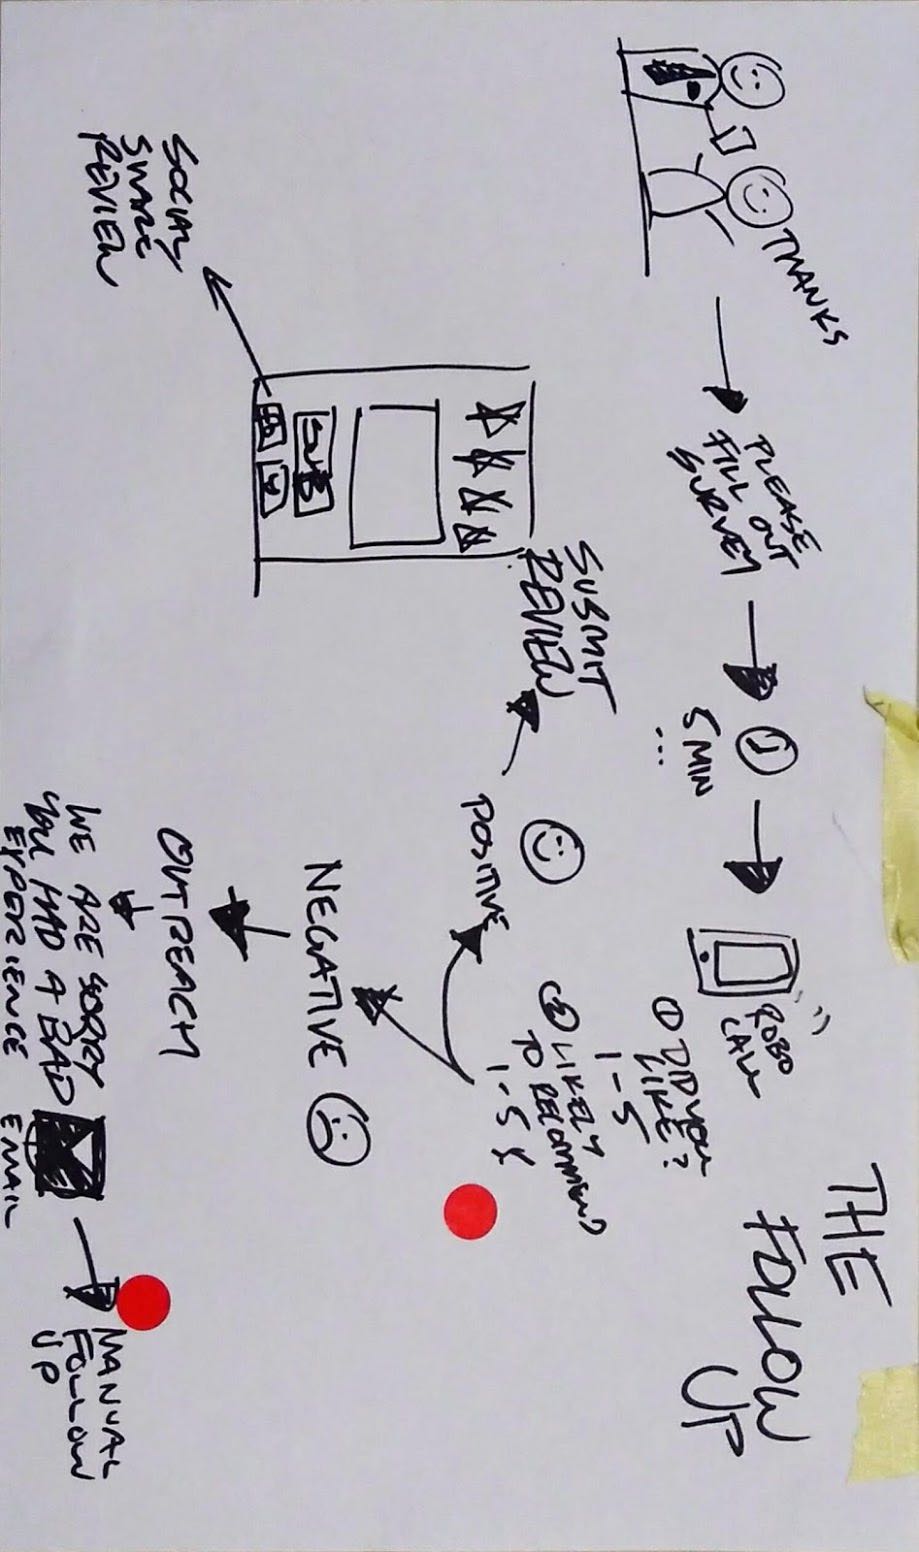 THE
FOLLOW
UP
THANKS
PLEASE
FILL OUT
SURVEY
5 MIN
...
ROBO
CALL
① DID YOU
LIKE?
1-5
② LIKELY
TO RECOMMEND
1-5
POSITIVE
SUBMIT
REVIEW
SUB
SOCIAL
SHARE
REVIEW
NEGATIVE
OUTREACH
WE ARE SORRY
YOU HAD A BAD
EXPERIENCE
EMAIL
MANUAL
FOLLOW
UP